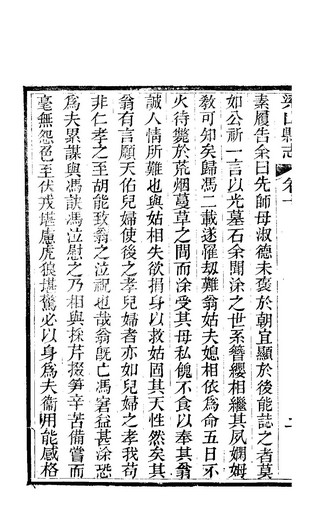 梁山縣志 卷十
素履告余曰先師母淑德未褒於朝宜顯於後能誌之者莫
如公祈一言以光墓石余聞涂之世系簪纓相繼其夙嫻姆
教可知矣歸馮二載遂罹劫難翁姑夫媳相依為命五日不
火待斃於荒烟蔓草之間而涂受其母私餽不食以奉其翁
誠人情所難也與姑相失欲捐身以救姑固其天性然矣其
翁有言願天佑兒婦使後之孝兒婦者亦如兒婦之孝我苟
非仁孝之至胡能致翁之泣祝也哉翁既亡馮窘益甚涂恐
為夫累謀與馮訣馮泣慰之乃相與採芹掇笋辛苦備嘗而
毫無怨色至伏戎堪慮虎狼堪驚必以身為夫衞用能感格